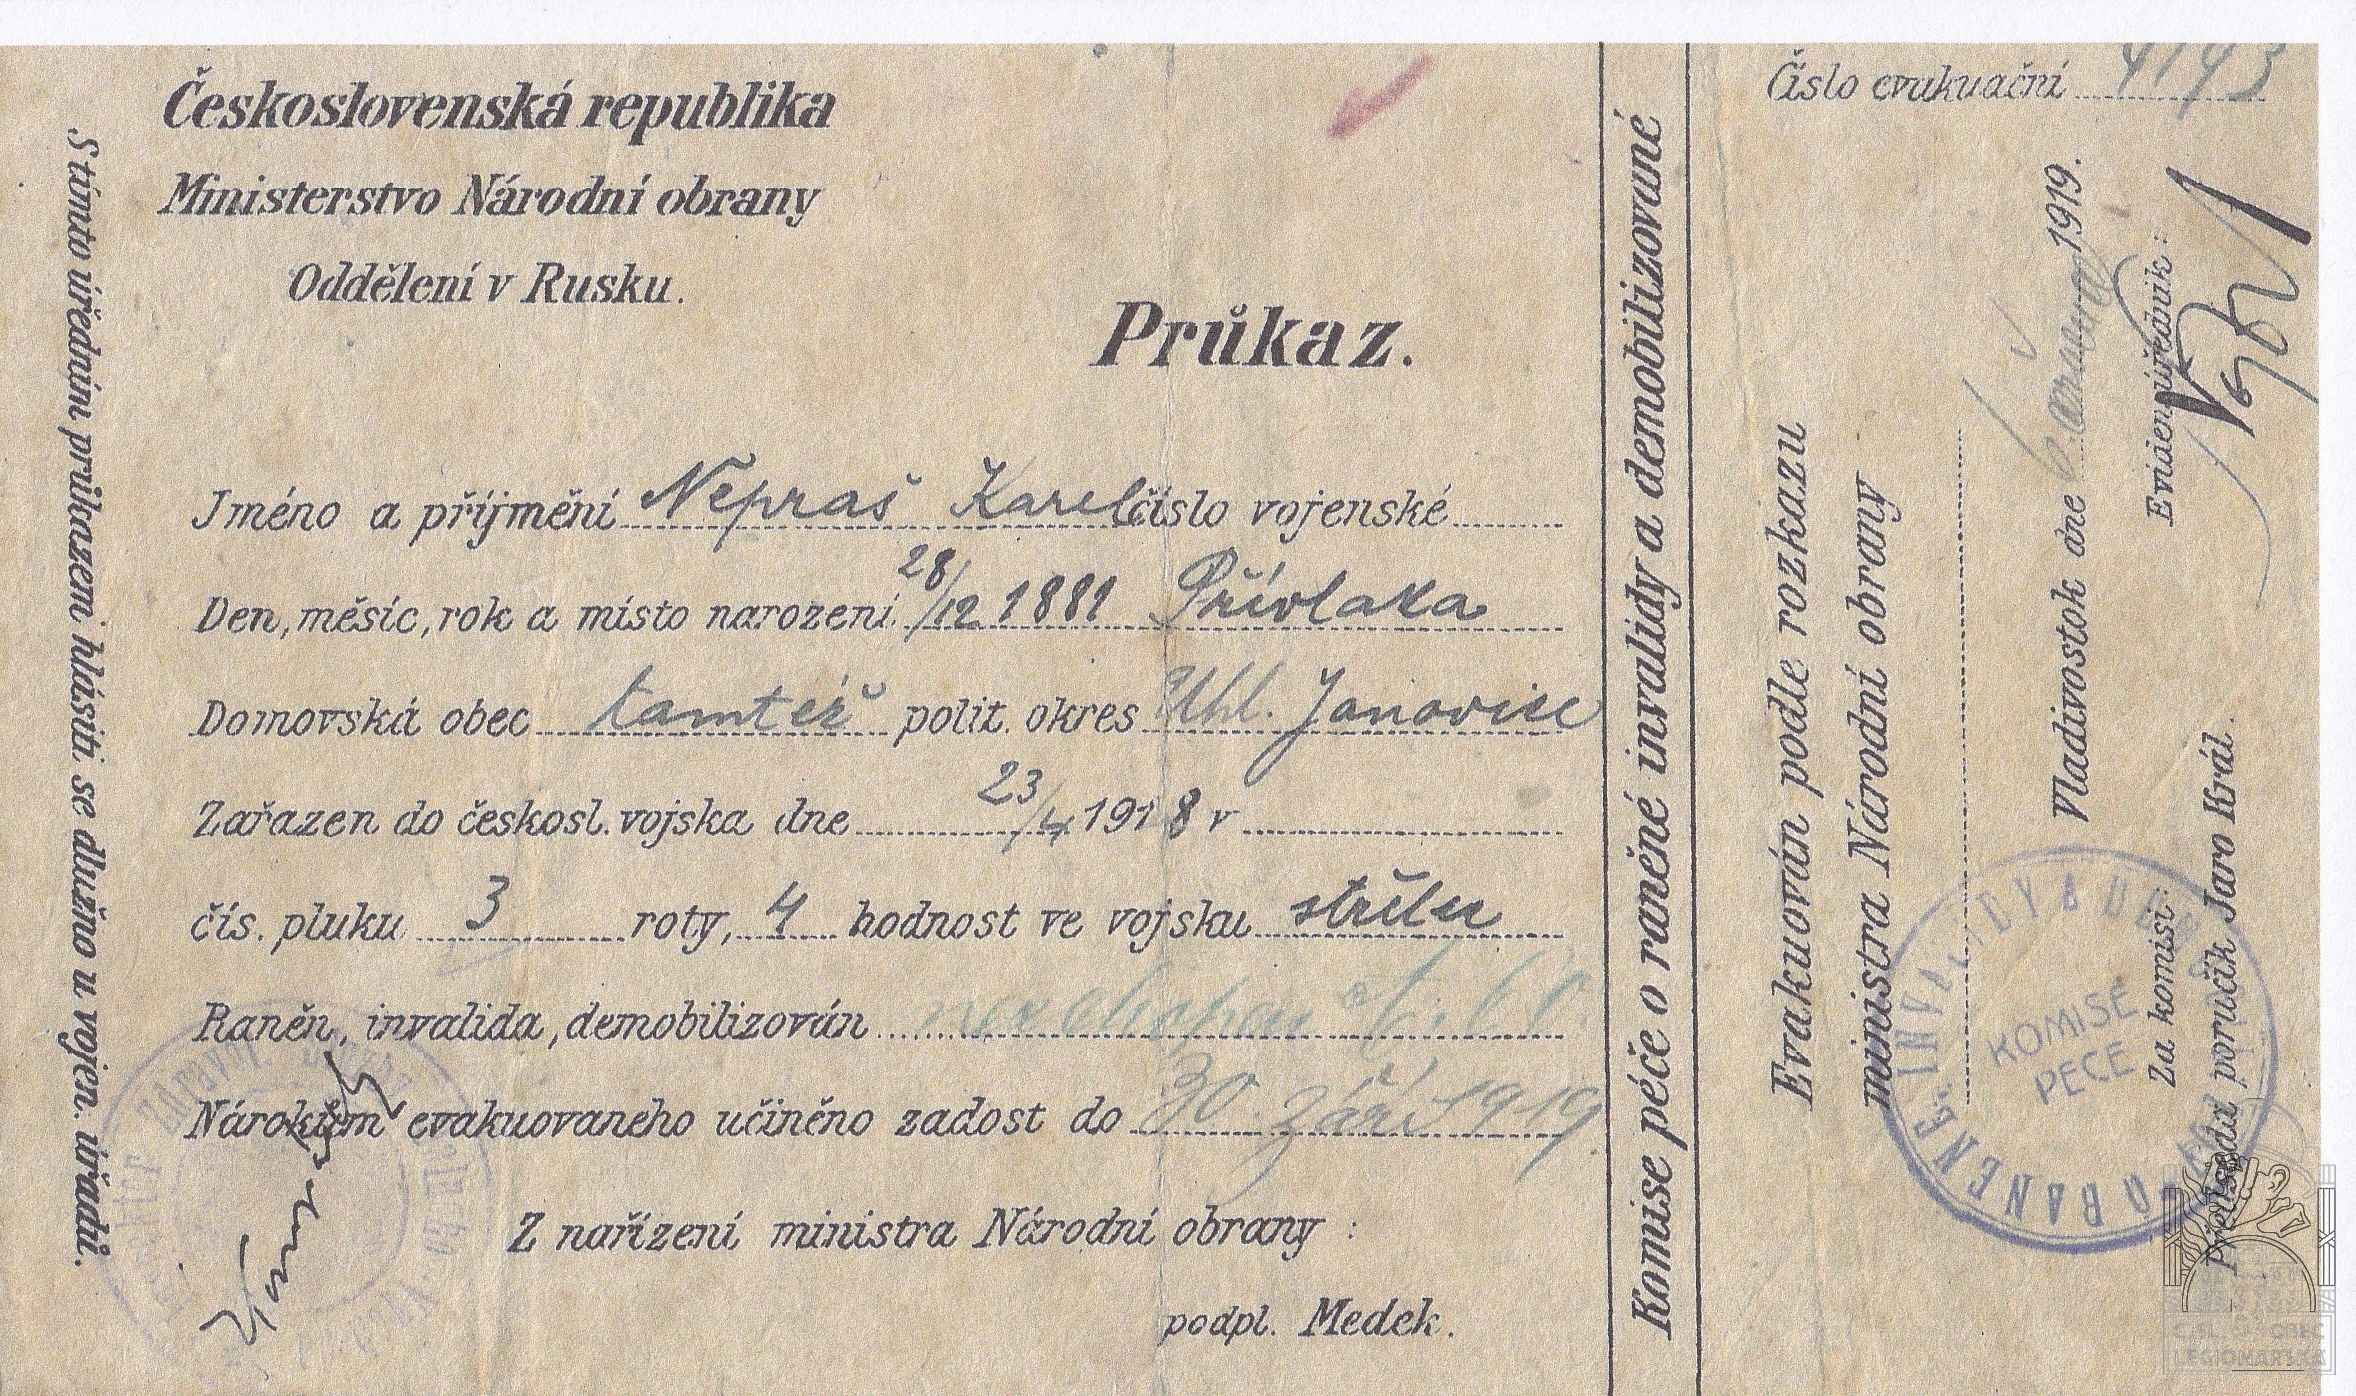 Československá republika
Ministerstvo Národní obrany
Oddělení v Rusku.
Průkaz.
Jméno a příjmění Nepraš Karel číslo vojenské
Den, měsíc, rok a místo narození 28/12 1881 Přívlaka
Domovská obec tamtéž polit. okres Uhl. Janovice
Zařazen do českosl. vojska dne 23/4 1918 v
čís. pluku 3 roty, 4 hodnost ve vojsku střelec
Raněn, invalida, demobilizován
Nárokům evakuovaného učiněno zadost do 30. září 1919
Z nařízení ministra Národní obrany:
podpl. Medek.
Stímto úředním průkazem hlásiti se dlužno u vojen. úřadů.
Komise péče o raněné invalidy a demobilizované
Číslo evakuační 4193
Evakuován podle rozkazu
ministra Národní obrany
Vladivostok dne 1919.
Za komisi: Evidenč. úředník:
Předseda poručík Jaro Král.
KOMISE
PÉČE
ČSL. OBEC
LEGIONÁŘSKÁ